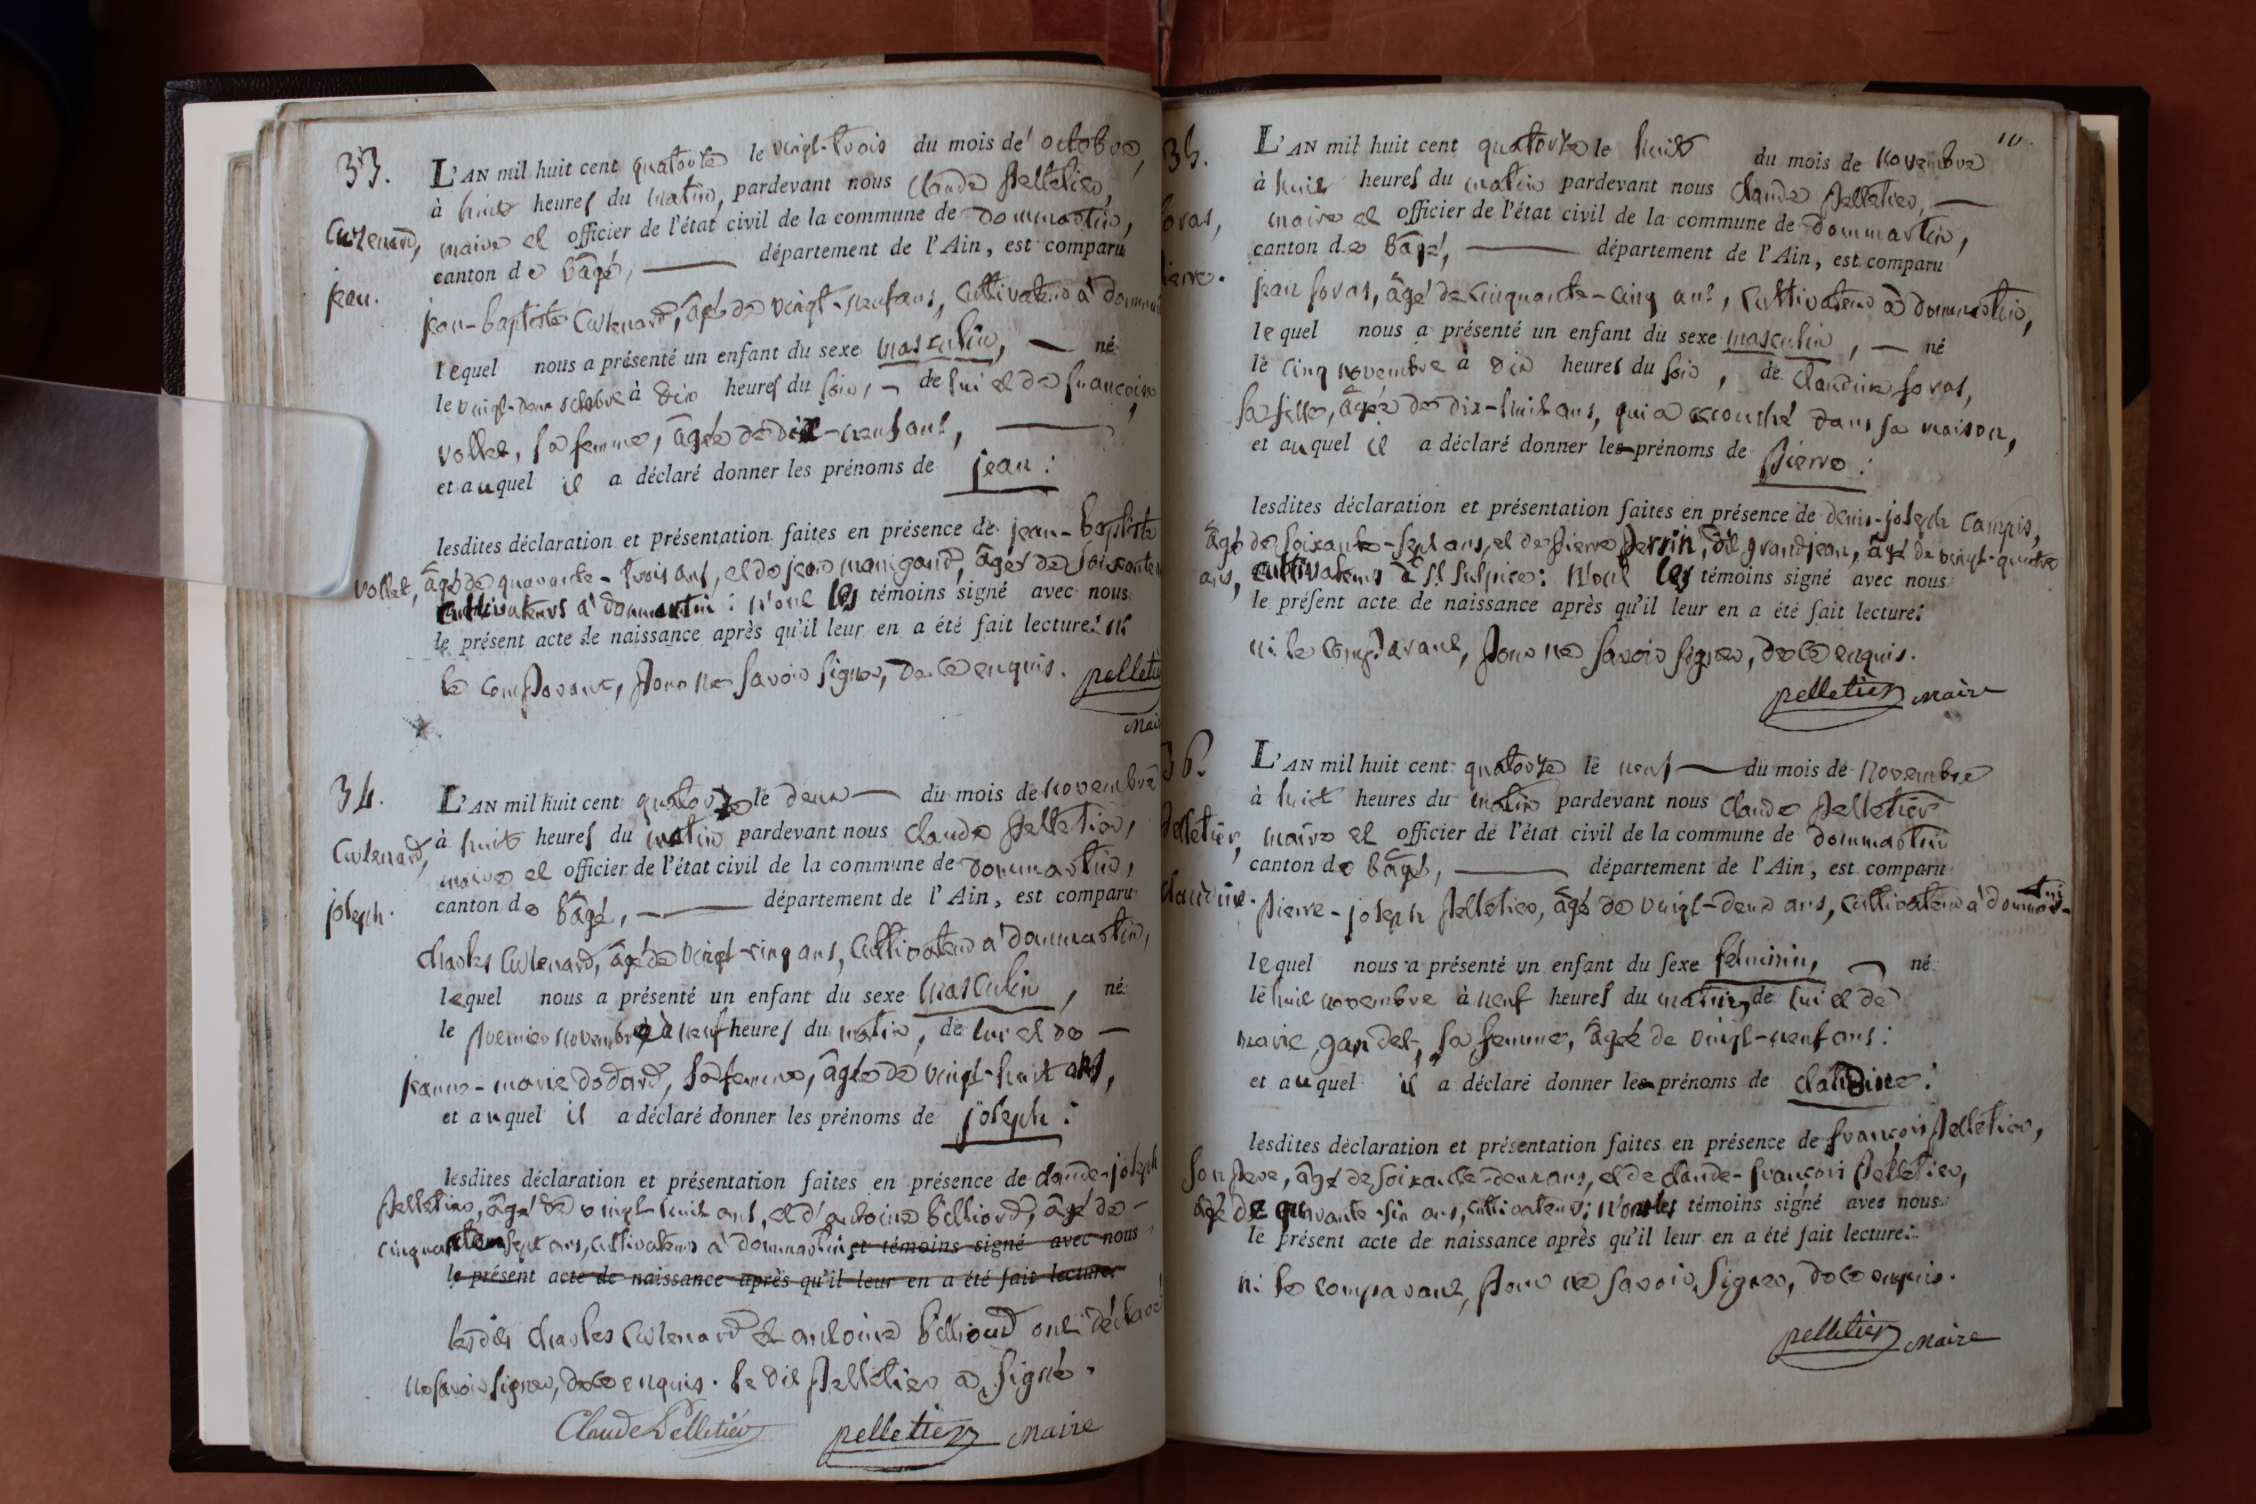 33.
Cuzenard,
jean.
L'AN mil huit cent quatorze le vingt-trois du mois de octobre,
à huit heures du matin, pardevant nous Claude Pelletier,
maire et officier de l'état civil de la commune de Dommartin,
canton de Bâgé, département de l'Ain, est comparu
jean-baptiste Cuzenard, âgé de vingt-neuf ans, cultivateur à Dommartin
lequel nous a présenté un enfant du sexe masculin, né
le vingt-deux octobre à dix heures du soir, de lui et de françoise
vollet, sa femme, âgée de dix-neuf ans,
et auquel il a déclaré donner les prénoms de jean :
lesdites déclaration et présentation faites en présence de jean-baptiste
vollet, âgé de quarante-trois ans, et de jean manigand, âgé de soixante
cultivateurs à dommartin : n'ont les témoins signé avec nous
le présent acte de naissance après qu'il leur en a été fait lecture: ni
le comparant, pour ne savoir signer, de ce enquis. pelletier
Maire
34.
Cuzenard,
joseph.
L'AN mil huit cent quatorze le deux du mois de novembre
à huit heures du matin pardevant nous Claude Pelletier,
maire et officier de l'état civil de la commune de Dommartin,
canton de Bâgé, département de l'Ain, est comparu
Charles Cuzenard, âgé de vingt-cinq ans, cultivateur à Dommartin,
lequel nous a présenté un enfant du sexe masculin, né
le premier novembre à neuf heures du matin, de lui et de
jeanne-marie dodard, sa femme, âgée de vingt-huit ans,
et auquel il a déclaré donner les prénoms de joseph :
lesdites déclaration et présentation faites en présence de claude-joseph
Pelletier, âgé de vingt-huit ans, et d'antoine Belliord, âgé de
cinquante sept ans, cultivateurs à dommartin; et témoins signé avec nous
le présent acte de naissance après qu'il leur en a été fait lecture.
lesdits Charles Cuzenard et antoine Belliord ont déclaré
ne savoir signer, de ce enquis. le dit Pelletier a signé.
Claude Pelletier pelletier Maire
10.
35.
foras,
pierre.
L'AN mil huit cent quatorze le huit du mois de novembre
à huit heures du matin pardevant nous Claude Pelletier,
maire et officier de l'état civil de la commune de Dommartin,
canton de Bâgé, département de l'Ain, est comparu
jean foras, âgé de cinquante-cinq ans, cultivateur à dommartin,
lequel nous a présenté un enfant du sexe masculin, né
le cinq novembre à dix heures du soir, de Claudine foras,
sa fille, âgée de dix-huit ans, qui a accouché dans sa maison,
et auquel il a déclaré donner les prénoms de Pierre :
lesdites déclaration et présentation faites en présence de denis-joseph Campis,
âgé de soixante-sept ans, et de Pierre Perrin, dit grandjean, âgé de vingt-quatre
ans, cultivateurs à St. Sulpice: n'ont les témoins signé avec nous
le présent acte de naissance après qu'il leur en a été fait lecture:
ni le comparant, pour ne savoir signer, de ce enquis.
pelletier Maire
36.
Pelletier,
claudine.
L'AN mil huit cent quatorze le neuf du mois de novembre
à huit heures du matin pardevant nous Claude Pelletier
maire et officier de l'état civil de la commune de Dommartin
canton de Bâgé, département de l'Ain, est comparu
Pierre-joseph Pelletier, âgé de vingt-deux ans, cultivateur à dommartin
lequel nous a présenté un enfant du sexe féminin, né
le huit novembre à neuf heures du matin, de lui et de
marie gandet, sa femme, âgée de vingt-neuf ans :
et auquel il a déclaré donner les prénoms de claudine :
lesdites déclaration et présentation faites en présence de françois Pelletier,
son père, âgé de soixante-deux ans, et de claude-françois Pelletier,
âgé de quarante-six ans, cultivateurs; n'ont les témoins signé avec nous
le présent acte de naissance après qu'il leur en a été fait lecture:
ni le comparant, pour ne savoir signer, de ce enquis.
pelletier Maire